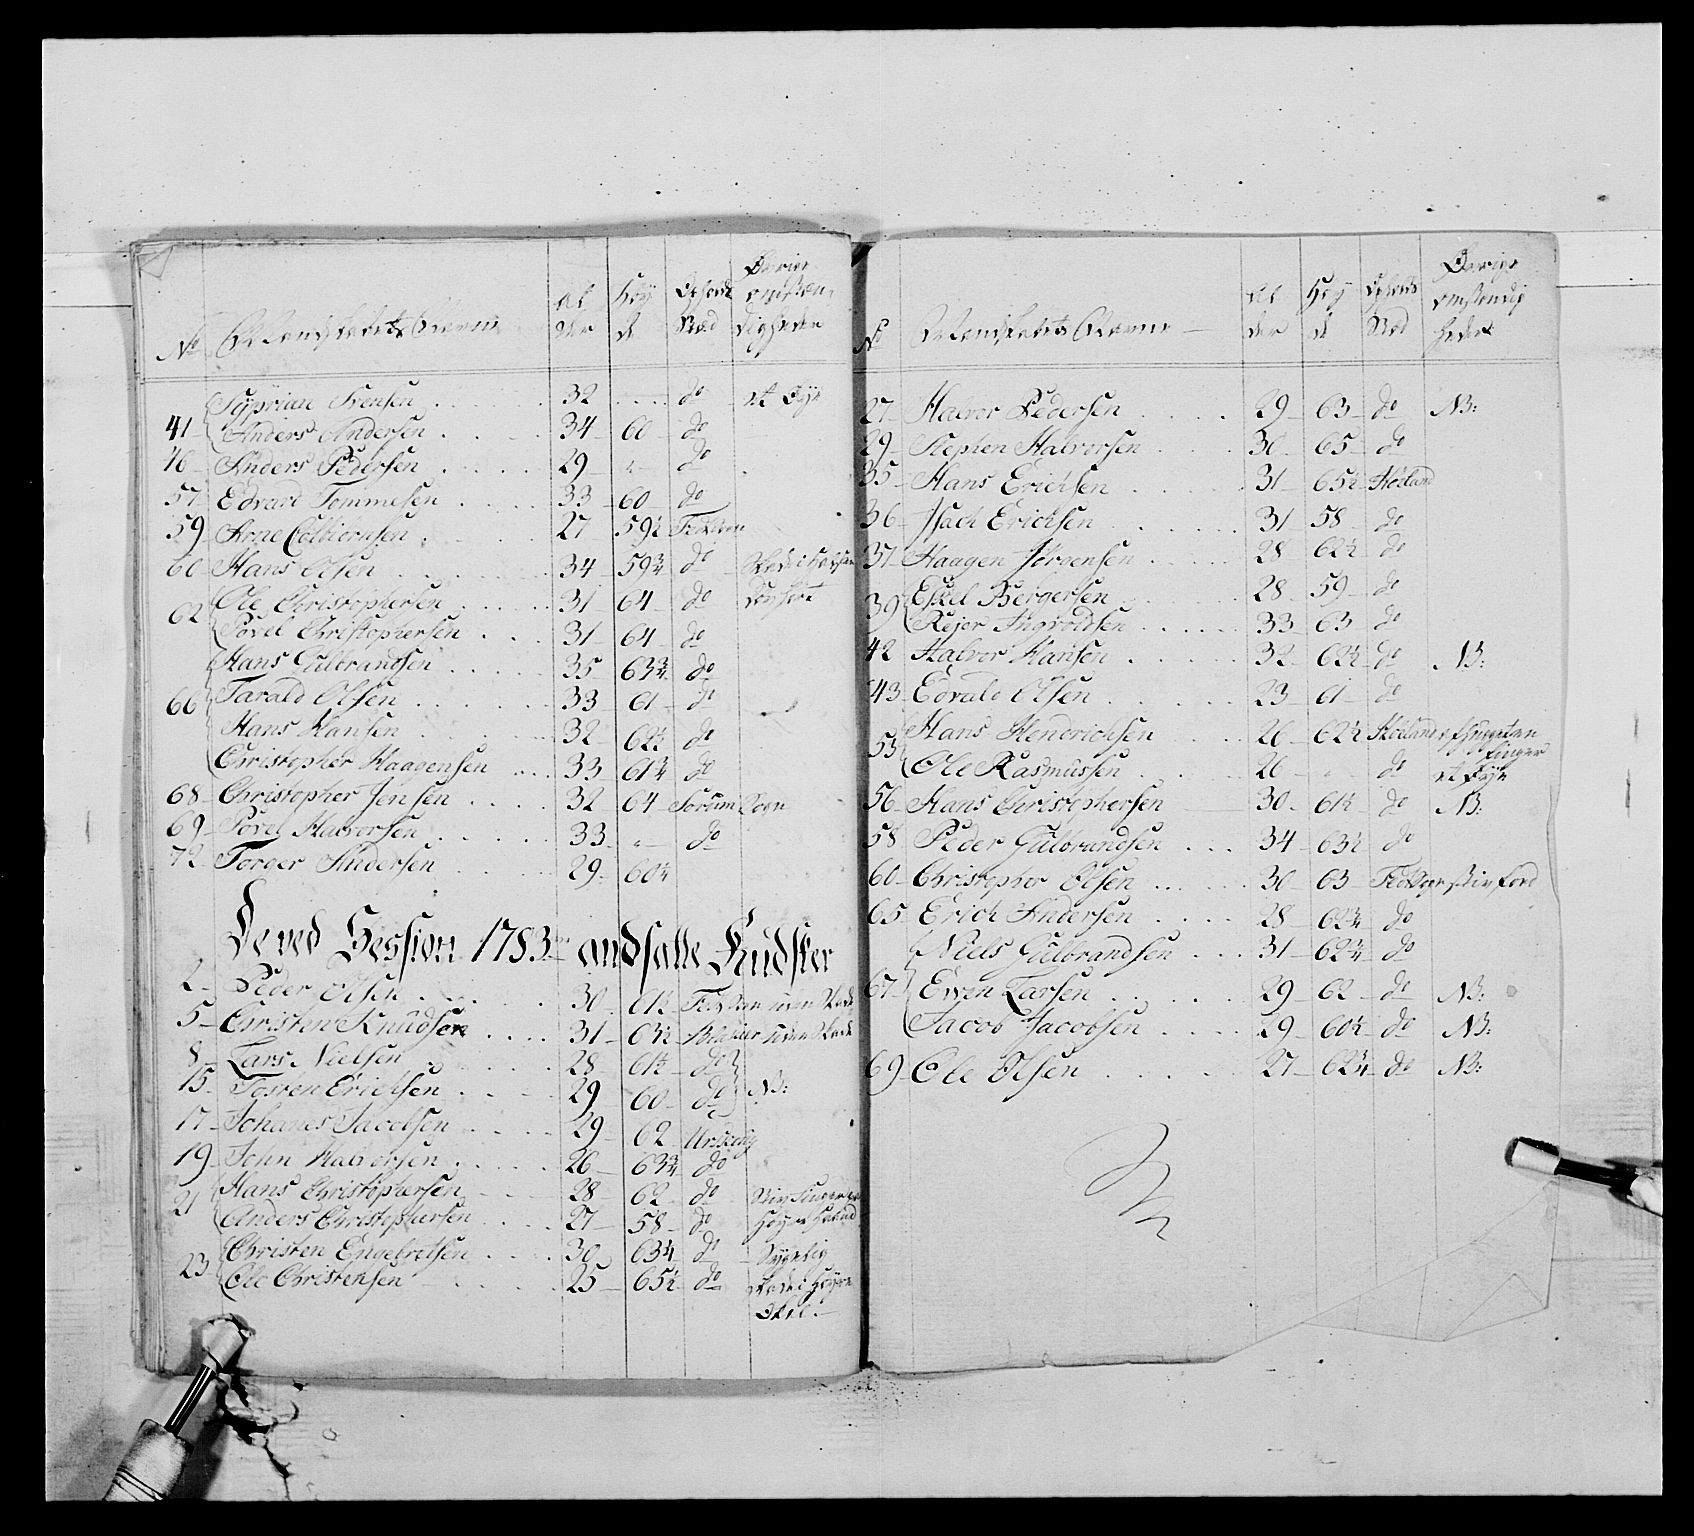 No Mandskabets Navne Al der Høy de Opholds Stæd Øvrige omstæn digheder
Syprian Svensen 32 do et Øye
41 Anders Andersen 34 60 do
46 Anders Pedersen 29 " do
57 Edvard Tommesen 33 60 do
59 Arne Colbiørnsen 27 59½
60 Hans Olsen 34 59¾ do
62 Ole Christophersen 31 64 do
Povel Christophersen 31 64 do
Hans Gulbrandsen 35 63¾ do
66 Tarald Olsen 33 61 do
Hans Hansen 32 62½ do
Christopher Haagensen 33 61¾ do
68 Christopher Jensen 32 64 Sørum Sogn
69 Povel Halvorsen 33 " do
72 Torger Andersen 29 60¼
De ved Session 1783 andsatte Kudsker
2 Peder Olsen 30 61½
5 Christen Knudsen 31 63½
8 Lars Nielsen 28 61½ do
15 Tosten Erichsen 29 60 do NB:
17 Johanes Jacobsen 29 62 Urschoug
19 John Halvorsen 26 63¾ do
21 Hans Christophersen 28 62 do
Anders Christophersen 27 58 do Høyre Haand
23 Christen Engebretsen 30 63¼ do Sygelig
Ole Christensen 25 65½ do Skade i Høyre
No Mandskabets Navne Al der Høy de Opholds Stæd Øvrige omstændig heder
27 Halvor Pedersen 29 63 do NB:
29 Stephen Halvorsen 30 65 do
35 Hans Erichsen 31 65½ Høeland
36 Isach Erichsen 31 58 do
37 Haagen Jørgensen 28 62½ do
39 Eskel Bergersen 28 59 do
Rejer Ingvoldsen 33 63 do
42 Halvor Hansen 32 62½ do NB:
43 Edvald Olsen 23 61 do
53 Hans Hendrichsen 26 62½ Høeland finger
Ole Rasmussen 26 " do et Øye
56 Hans Christophersen 30 61½ do NB:
58 Peder Gulbrandsen 34 63½ do
60 Christopher Olsen 30 63
65 Erich Andersen 28 62¾ do
Niels Gulbrandsen 31 62¾ do
67 Even Larsen 29 62 do NB:
Jacob Jacobsen 29 60½ do NB:
69 Ole Olsen 27 62¾ do NB: